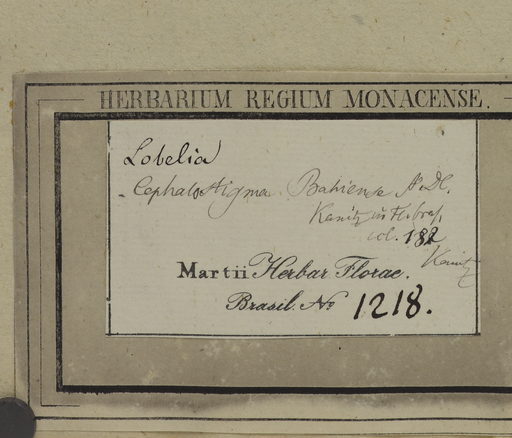 HERBARIUM REGIUM MONACENSE.
Lobelia
Cephalostigma Bahiense A.DC.
Kanitz in Fl. bras.
col. 182
Kanitz
Martii Herbar. Florae.
Brasil. No 1218.